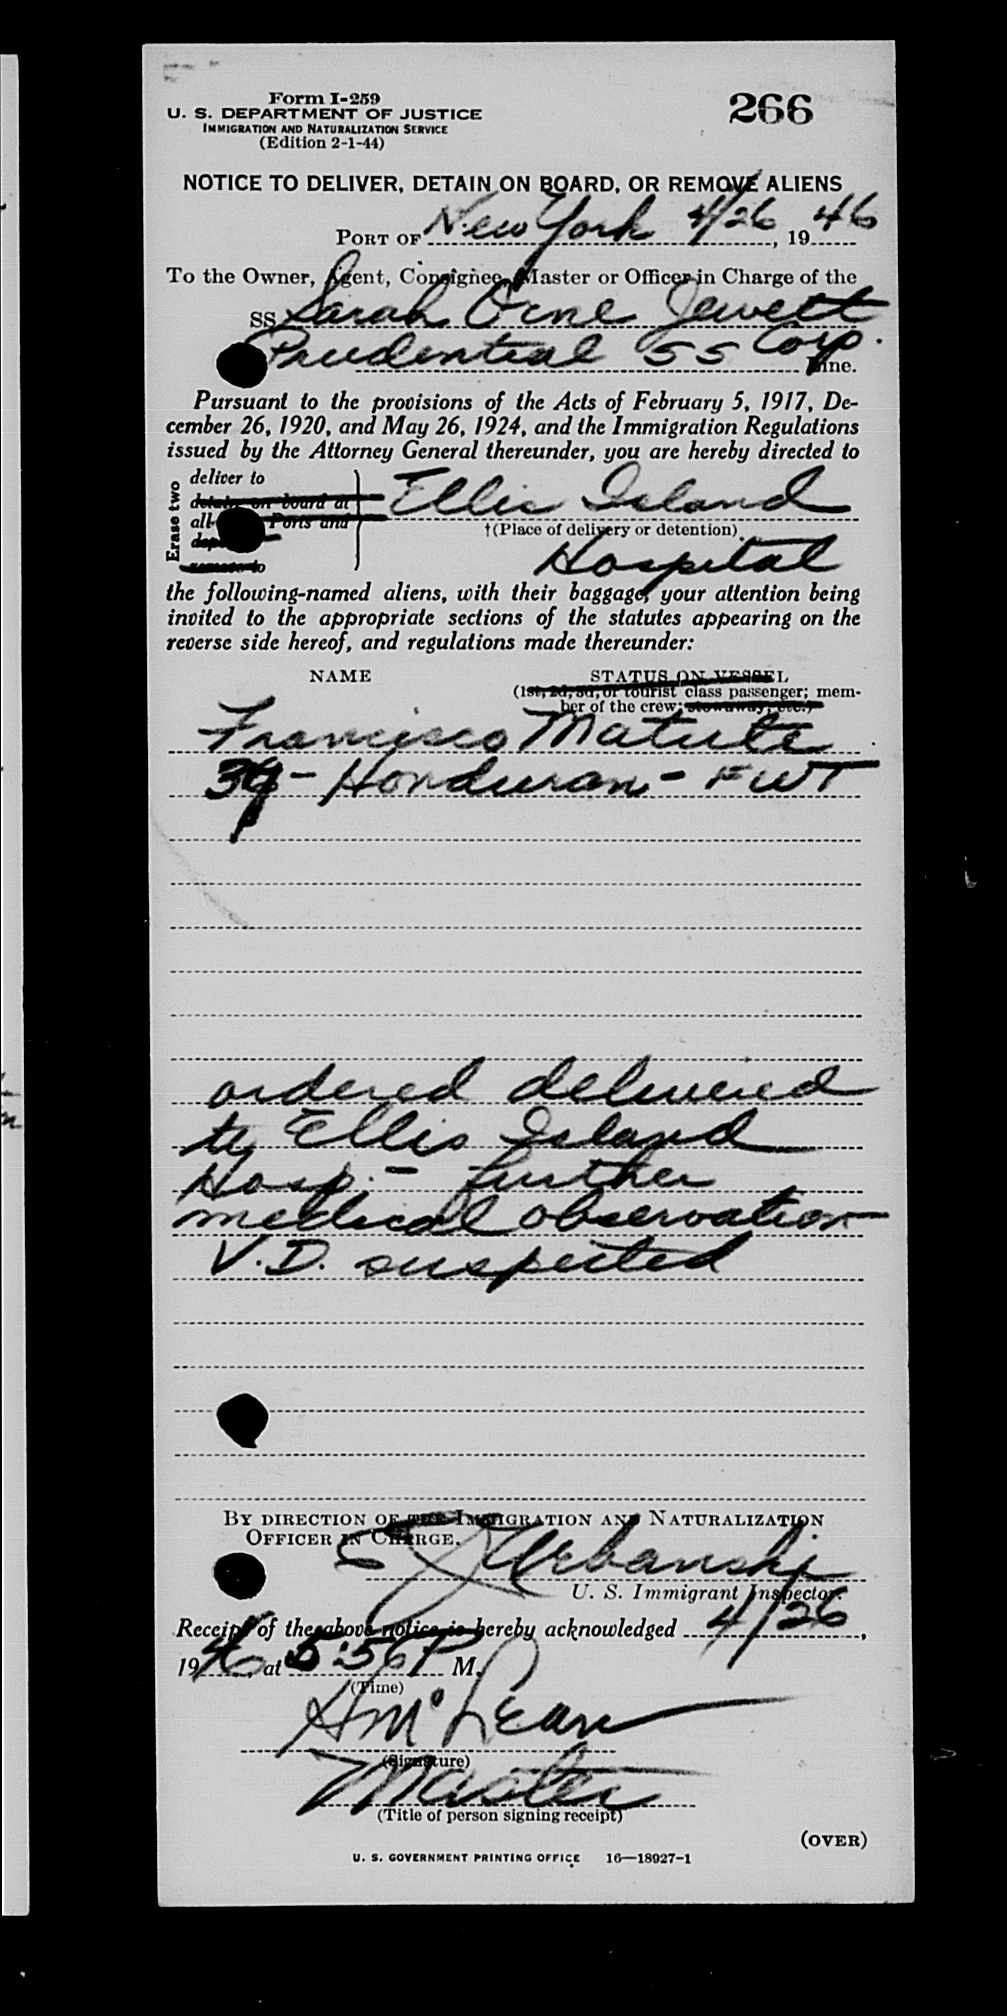 Form I-259
U. S. DEPARTMENT OF JUSTICE
IMMIGRATION AND NATURALIZATION SERVICE
(Edition 2-1-44)
266
NOTICE TO DELIVER, DETAIN ON BOARD, OR REMOVE ALIENS
PORT OF New York 4/26, 19 46
To the Owner, Agent, Consignee, Master or Officer in Charge of the
SS Sarah Orne Jewett
Prudential SS Corp. Line.
Pursuant to the provisions of the Acts of February 5, 1917, De-
cember 26, 1920, and May 26, 1924, and the Immigration Regulations
issued by the Attorney General thereunder, you are hereby directed to
Erase two
deliver to
detain on board at
all Ports and
remove to
Ellis Island
†(Place of delivery or detention)
Hospital
the following-named aliens, with their baggage, your attention being
invited to the appropriate sections of the statutes appearing on the
reverse side hereof, and regulations made thereunder:
NAME
STATUS ON VESSEL
(1st, 2d, 3d, or tourist class passenger; mem-
ber of the crew; stowaway, etc.)
Francisco Matute
Honduran - FWT
ordered delivered
to Ellis Island
Hosp. - further
medical observation
V.D. suspected
BY DIRECTION OF THE IMMIGRATION AND NATURALIZATION
OFFICER IN CHARGE.
Urbanski
U. S. Immigrant Inspector.
Receipt of the above notice is hereby acknowledged 4/26,
19 46, at 5:56 P M.
(Time)
McLean
(Signature)
Master
(Title of person signing receipt)
(OVER)
U. S. GOVERNMENT PRINTING OFFICE 16—18927-1